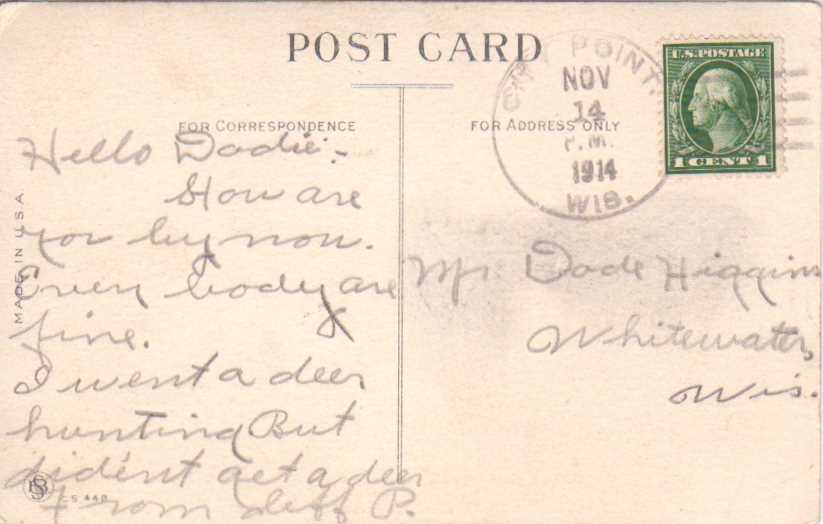 POST CARD
FOR CORRESPONDENCE
FOR ADDRESS ONLY
CITY POINT.
NOV
14
P.M.
1914
WIS.
U.S. POSTAGE
1 CENT 1
MADE IN U.S.A.
Hello Dodie:-
How are
you by now.
Every body are
fine.
I went a deer
hunting But
dident get a deer
From Jeff P.
Mr Dode Higgins
Whitewater,
Wis.